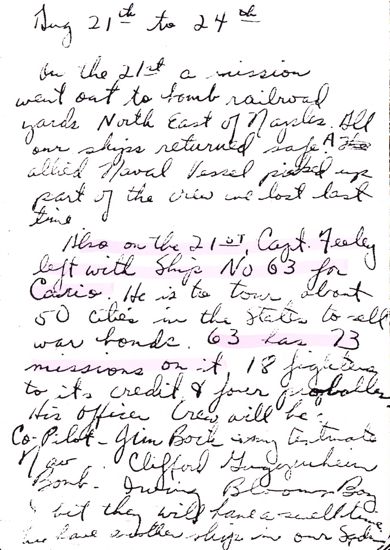 Aug 21th to 24th
On the 21st a mission
went out to bomb railroad
yards North East of Naples. All
our ships returned safe. A
allied Naval Vessel picked up
part of the crew we lost last
time
Also on the 21st, Capt. Feeley
left with Ship No 63 for
Cairio. He is to tour about
50 cities in the States to sell
war bonds. 63 has 73
missions on it, 18 fighters
to its credit & four probables
His officer Crew will be:
Co-Pilot - Jim Bock is my tentmate
Nav - Clifford Guggenheim
Bomb - Irving Bloom Boy
I bet they will have a swell time
have another ship in our